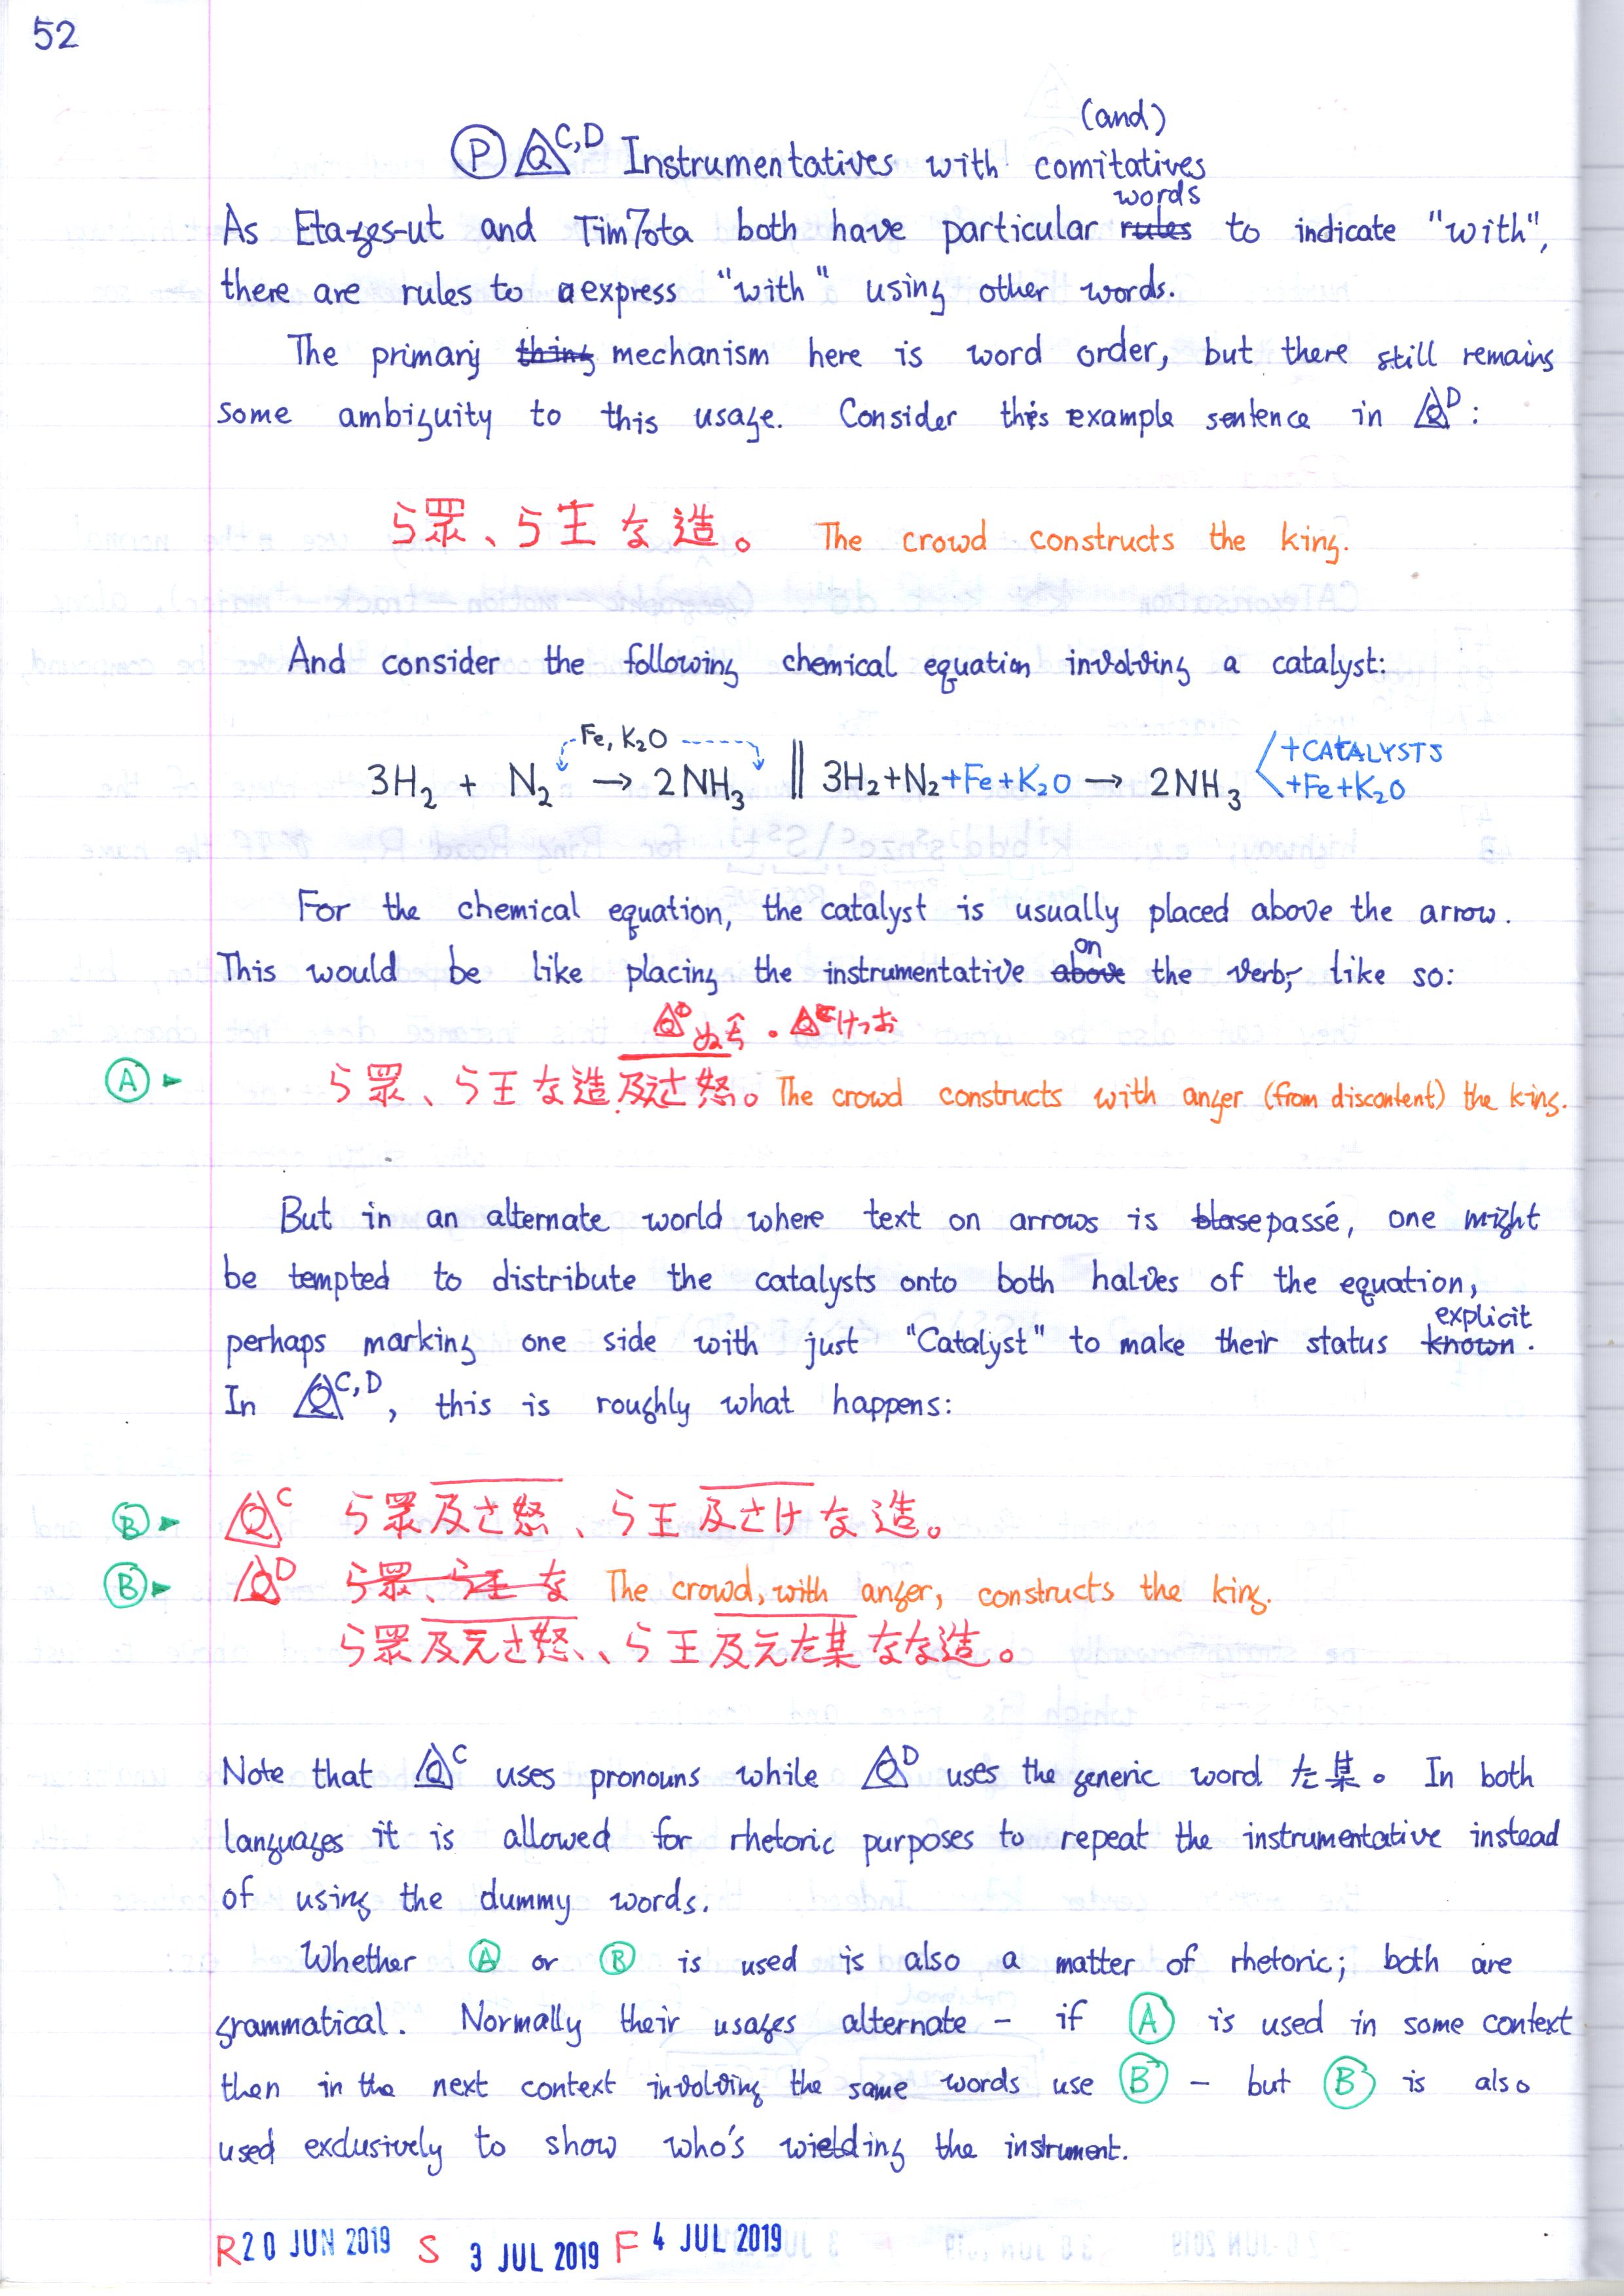 52
(and)
Ⓟ △Q C,D Instrumentatives with comitatives
words
As Etazes-ut and Tim7ota both have particular rules to indicate "with",
there are rules to express "with" using other words.
The primary thing mechanism here is word order, but there still remains
some ambiguity to this usage. Consider this example sentence in △Q D:
ら眾、ら王な造。 The crowd constructs the king.
And consider the following chemical equation involving a catalyst:
Fe, K₂O
3H₂ + N₂ → 2NH₃ || 3H₂+N₂+Fe+K₂O → 2NH₃ +CATALYSTS
+Fe+K₂O
For the chemical equation, the catalyst is usually placed above the arrow.
on
This would be like placing the instrumentative above the verb, like so:
Ⓐ► ら眾、ら王な造及过怒。 The crowd constructs with anger (from discontent) the king.
But in an alternate world where text on arrows is blase passé, one might
be tempted to distribute the catalysts onto both halves of the equation,
explicit
perhaps marking one side with just "Catalyst" to make their status known.
In △Q C,D, this is roughly what happens:
Ⓑ► △Q C ら眾及さ怒、ら王及さけな造。
Ⓑ► △Q D ら眾、ら王な The crowd, with anger, constructs the king.
ら眾及元さ怒、、ら王及元た集なな造。
Note that △Q C uses pronouns while △Q D uses the generic word た集。 In both
languages it is allowed for rhetoric purposes to repeat the instrumentative instead
of using the dummy words.
Whether Ⓐ or Ⓑ is used is also a matter of rhetoric; both are
grammatical. Normally their usages alternate – if Ⓐ is used in some context
then in the next context involving the same words use Ⓑ – but Ⓑ is also
used exclusively to show who's wielding the instrument.
R 20 JUN 2019 S 3 JUL 2019 F 4 JUL 2019